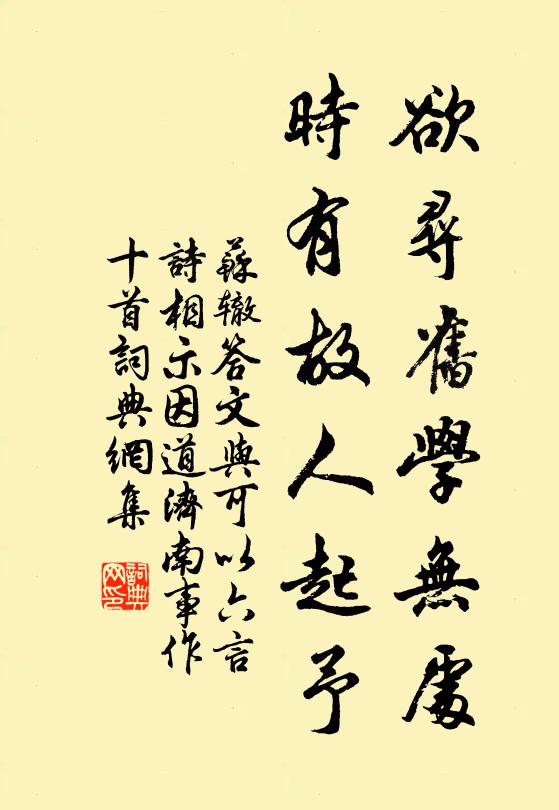 欲尋舊學無處
時有故人起予
蘇辙答文與可以六言
詩相示因道濟南事作
十首詞典網集
詞典
网印